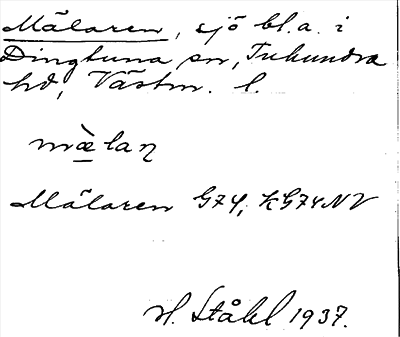 Mälaren, sjö bl.a. i
Dingtuna sn, Tuhundra
hd, Västm. l.
mæ̀laṇ
Mälaren G74, KG74NV
H. Ståhl 1937.